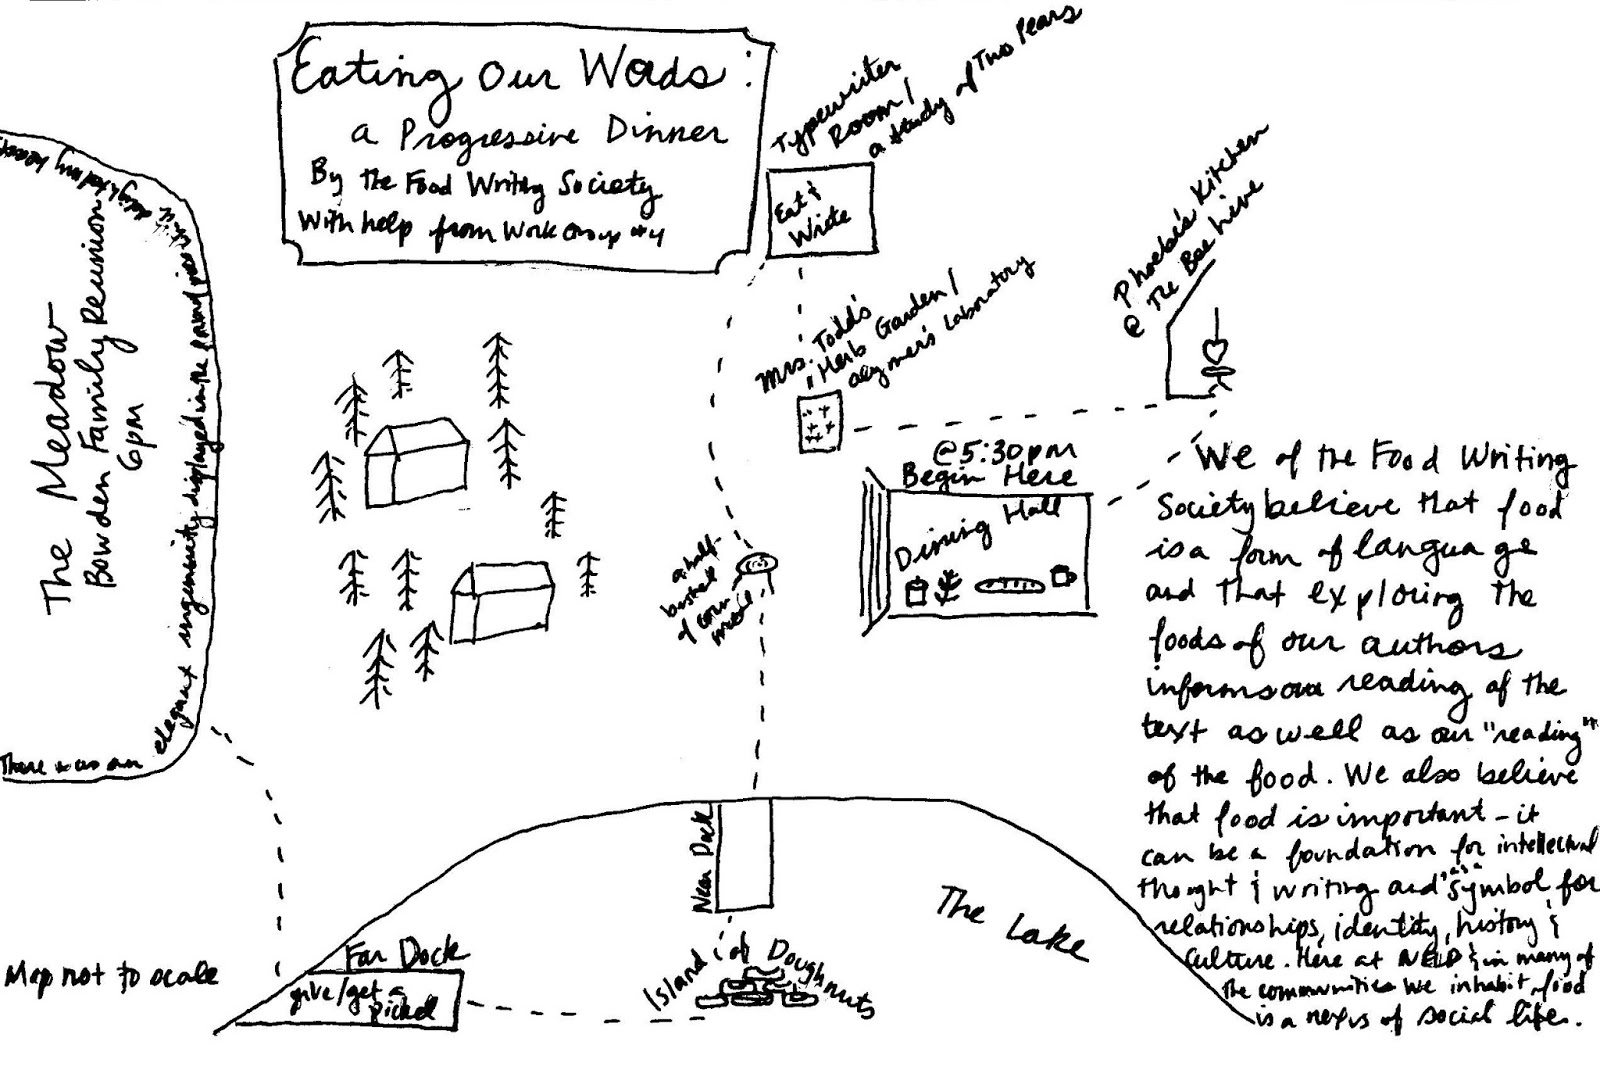 Eating Our Words:
a Progressive Dinner
By the Food Writing Society
With help from Work Group #4
Typewriter
Room/
a Study of Two Pears
Eat &
Write
Phoebe's Kitchen
@ The Bee hive
Mrs. Todd's
Herb Garden/
Aylmer's Laboratory
@5:30pm
Begin Here
Dining Hall
a half-
bushel
of corn
meal
The Meadow
Bowden Family Reunion
6pm
There was an elegant ingenuity displayed in the form of pies
Near Dock
The Lake
Island of Doughnuts
Far Dock
give/get a
pickle
Map not to scale
We of the Food Writing
Society believe that food
is a form of language
and that exploring the
foods of our authors
informs our reading of the
text as well as our "reading"
of the food. We also believe
that food is important - it
can be a foundation for intellectual
thought & writing and "as" symbol for
relationships, identity, history &
culture. Here at & in many of
the communities we inhabit, food
is a nexus of social life.